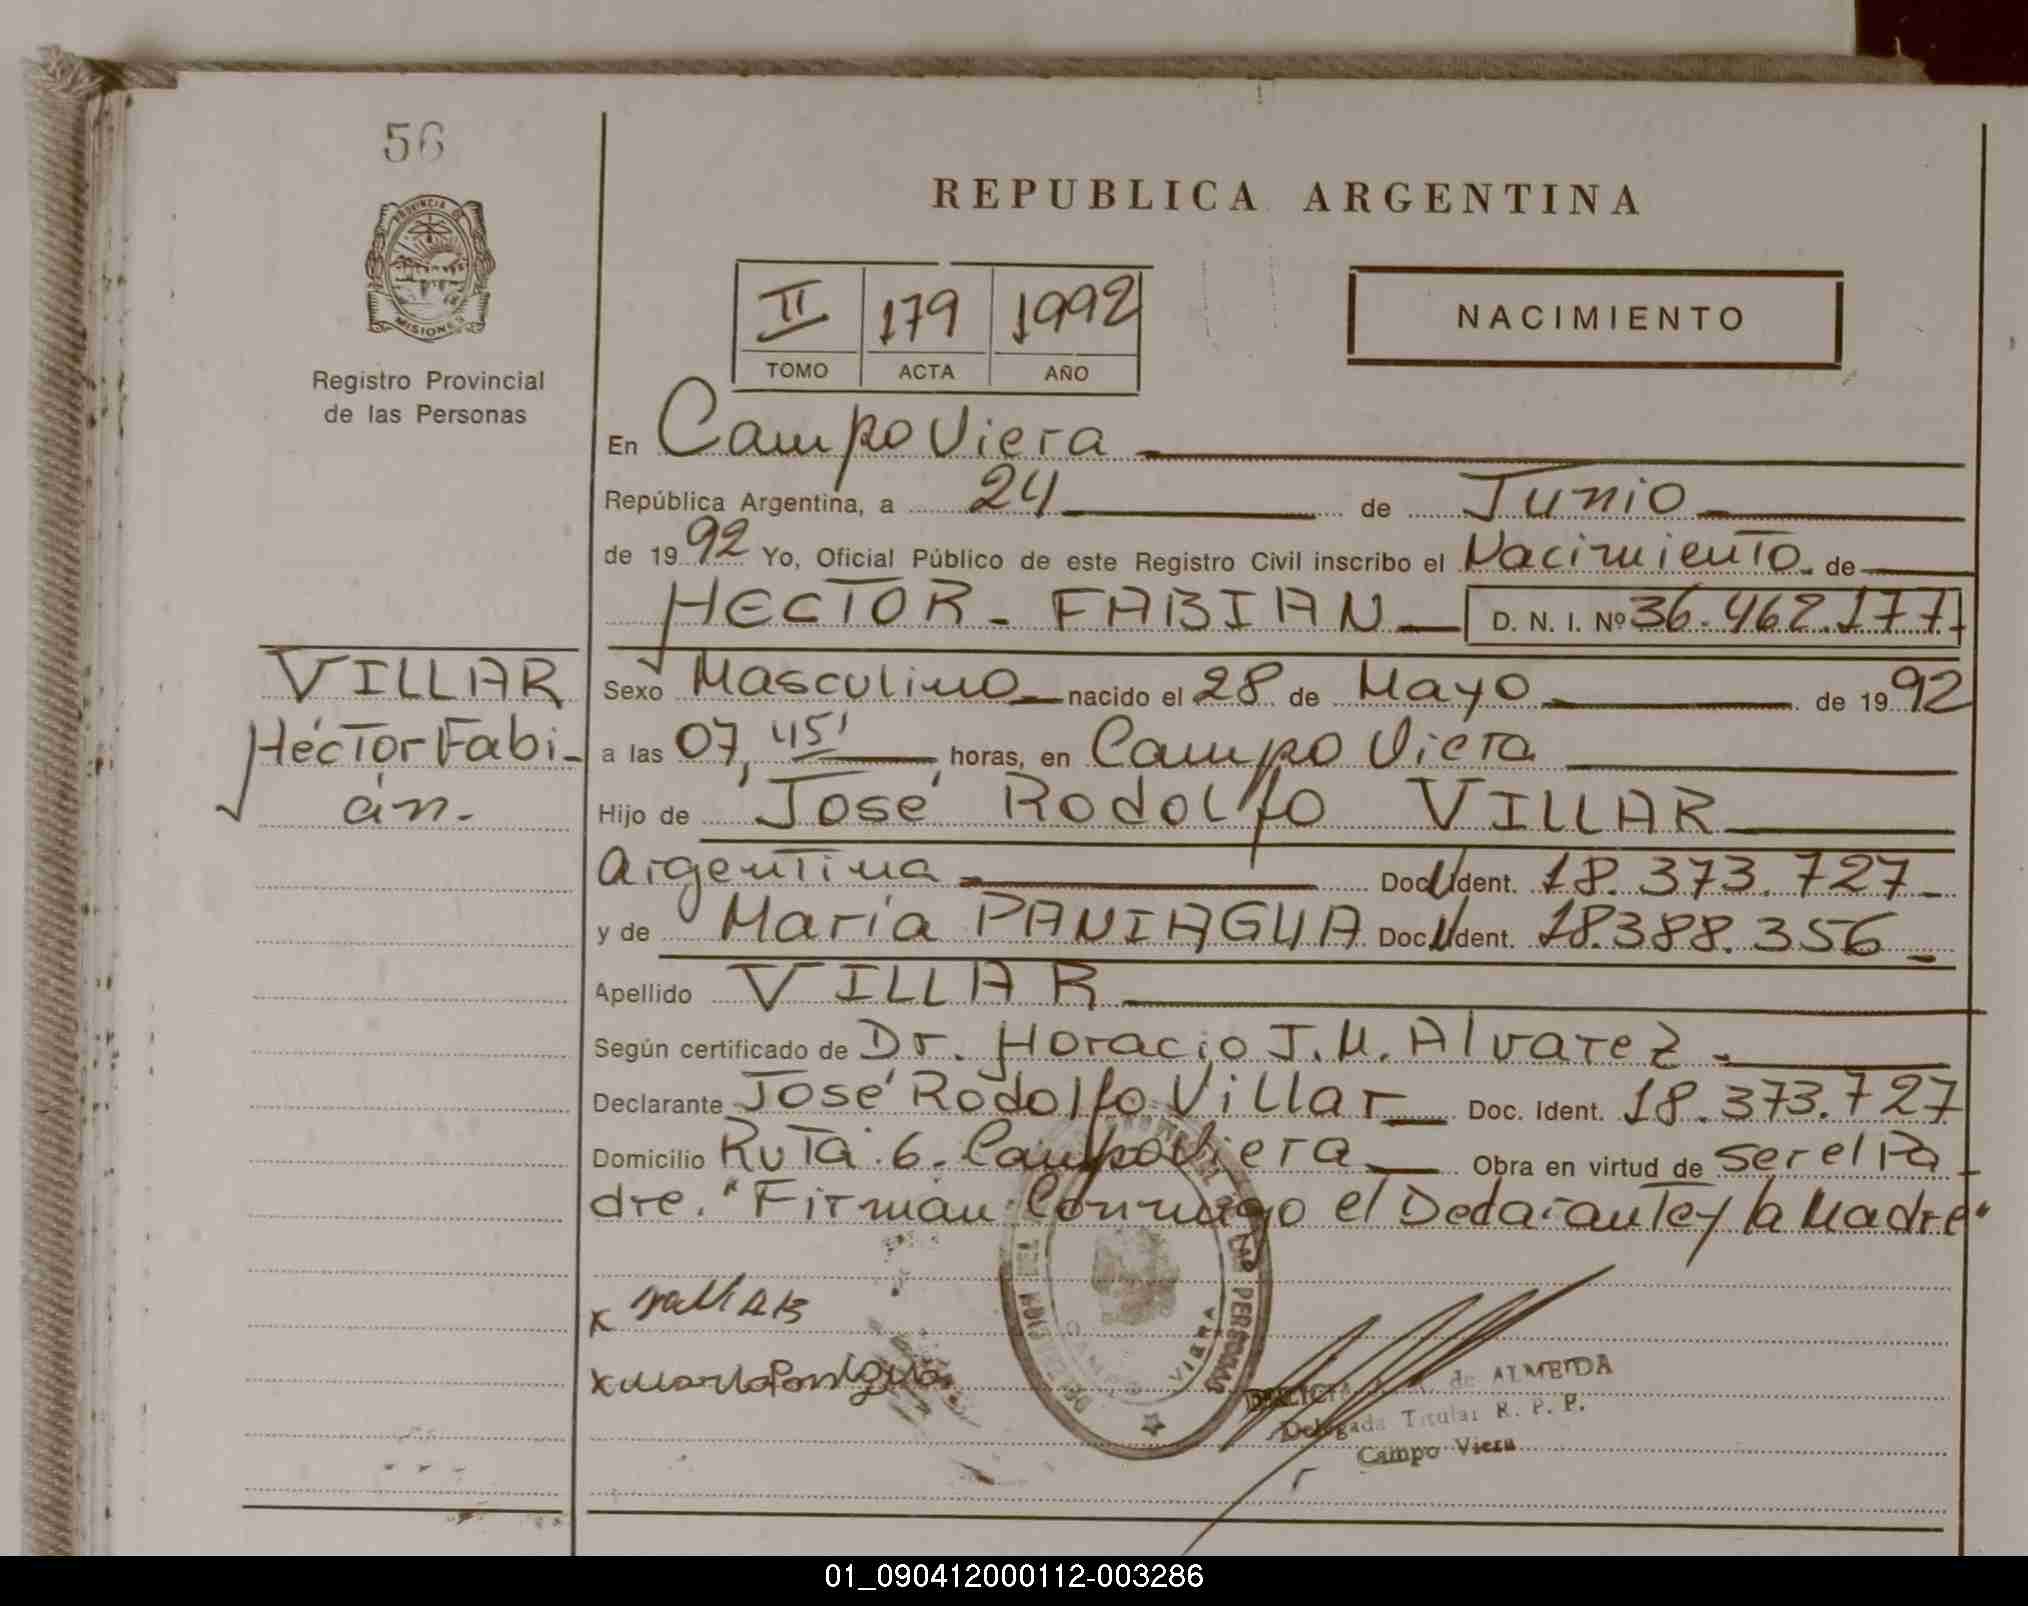 56
PROVINCIA DE
MISIONES
Registro Provincial
de las Personas
VILLAR
Héctor Fabi-
án.-
REPUBLICA ARGENTINA
NACIMIENTO
II 179 1992
TOMO ACTA AÑO
En Campo Viera
República Argentina, a 24 de Junio
de 1992 Yo, Oficial Público de este Registro Civil inscribo el Nacimiento de
HECTOR - FABIAN D. N. I. Nº 36.462.177
Sexo Masculino nacido el 28 de Mayo de 1992
a las 07,45' horas, en Campo Viera
Hijo de José Rodolfo VILLAR
Argentina Doc. Ident. 18.373.727
y de María PANIAGUA Doc. Ident. 18.388.356
Apellido VILLAR
Según certificado de Dr. Horacio J.M. Alvarez
Declarante José Rodolfo Villar Doc. Ident. 18.373.727
Domicilio Ruta 6. Campo Viera Obra en virtud de ser el Pa
dre. "Firman Conmigo el Declarante y la Madre"
x
x
PERSONAS
CAMPO VIERA
de ALMEIDA
Delegada Titular R. P. P.
Campo Viera
01_090412000112-003286